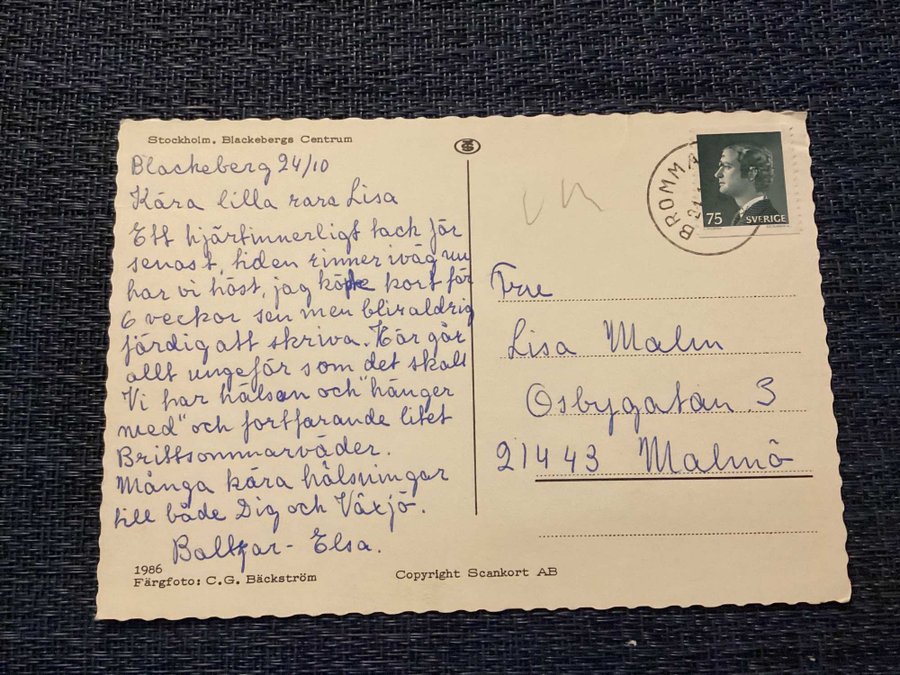 Stockholm, Blackebergs Centrum
Blackeberg 24/10
Kära lilla rara Lisa
Ett hjärtinnerligt tack för
senast, tiden rinner iväg nu
har vi höst, jag köpte kort för
6 veckor sen men blir aldrig
färdig att skriva. Här går
allt ungefär som det skall
Vi har hälsan och "hänger
med" och fortfarande litet
Brittsommarväder.
Många kära hälsningar
till både Dig och Växjö.
Baltzar - Elsa.
1986
Färgfoto: C.G. Bäckström
Copyright Scankort AB
BROMMA
75 SVERIGE
Fru
Lisa Malm
Osbygatan 3
21443 Malmö